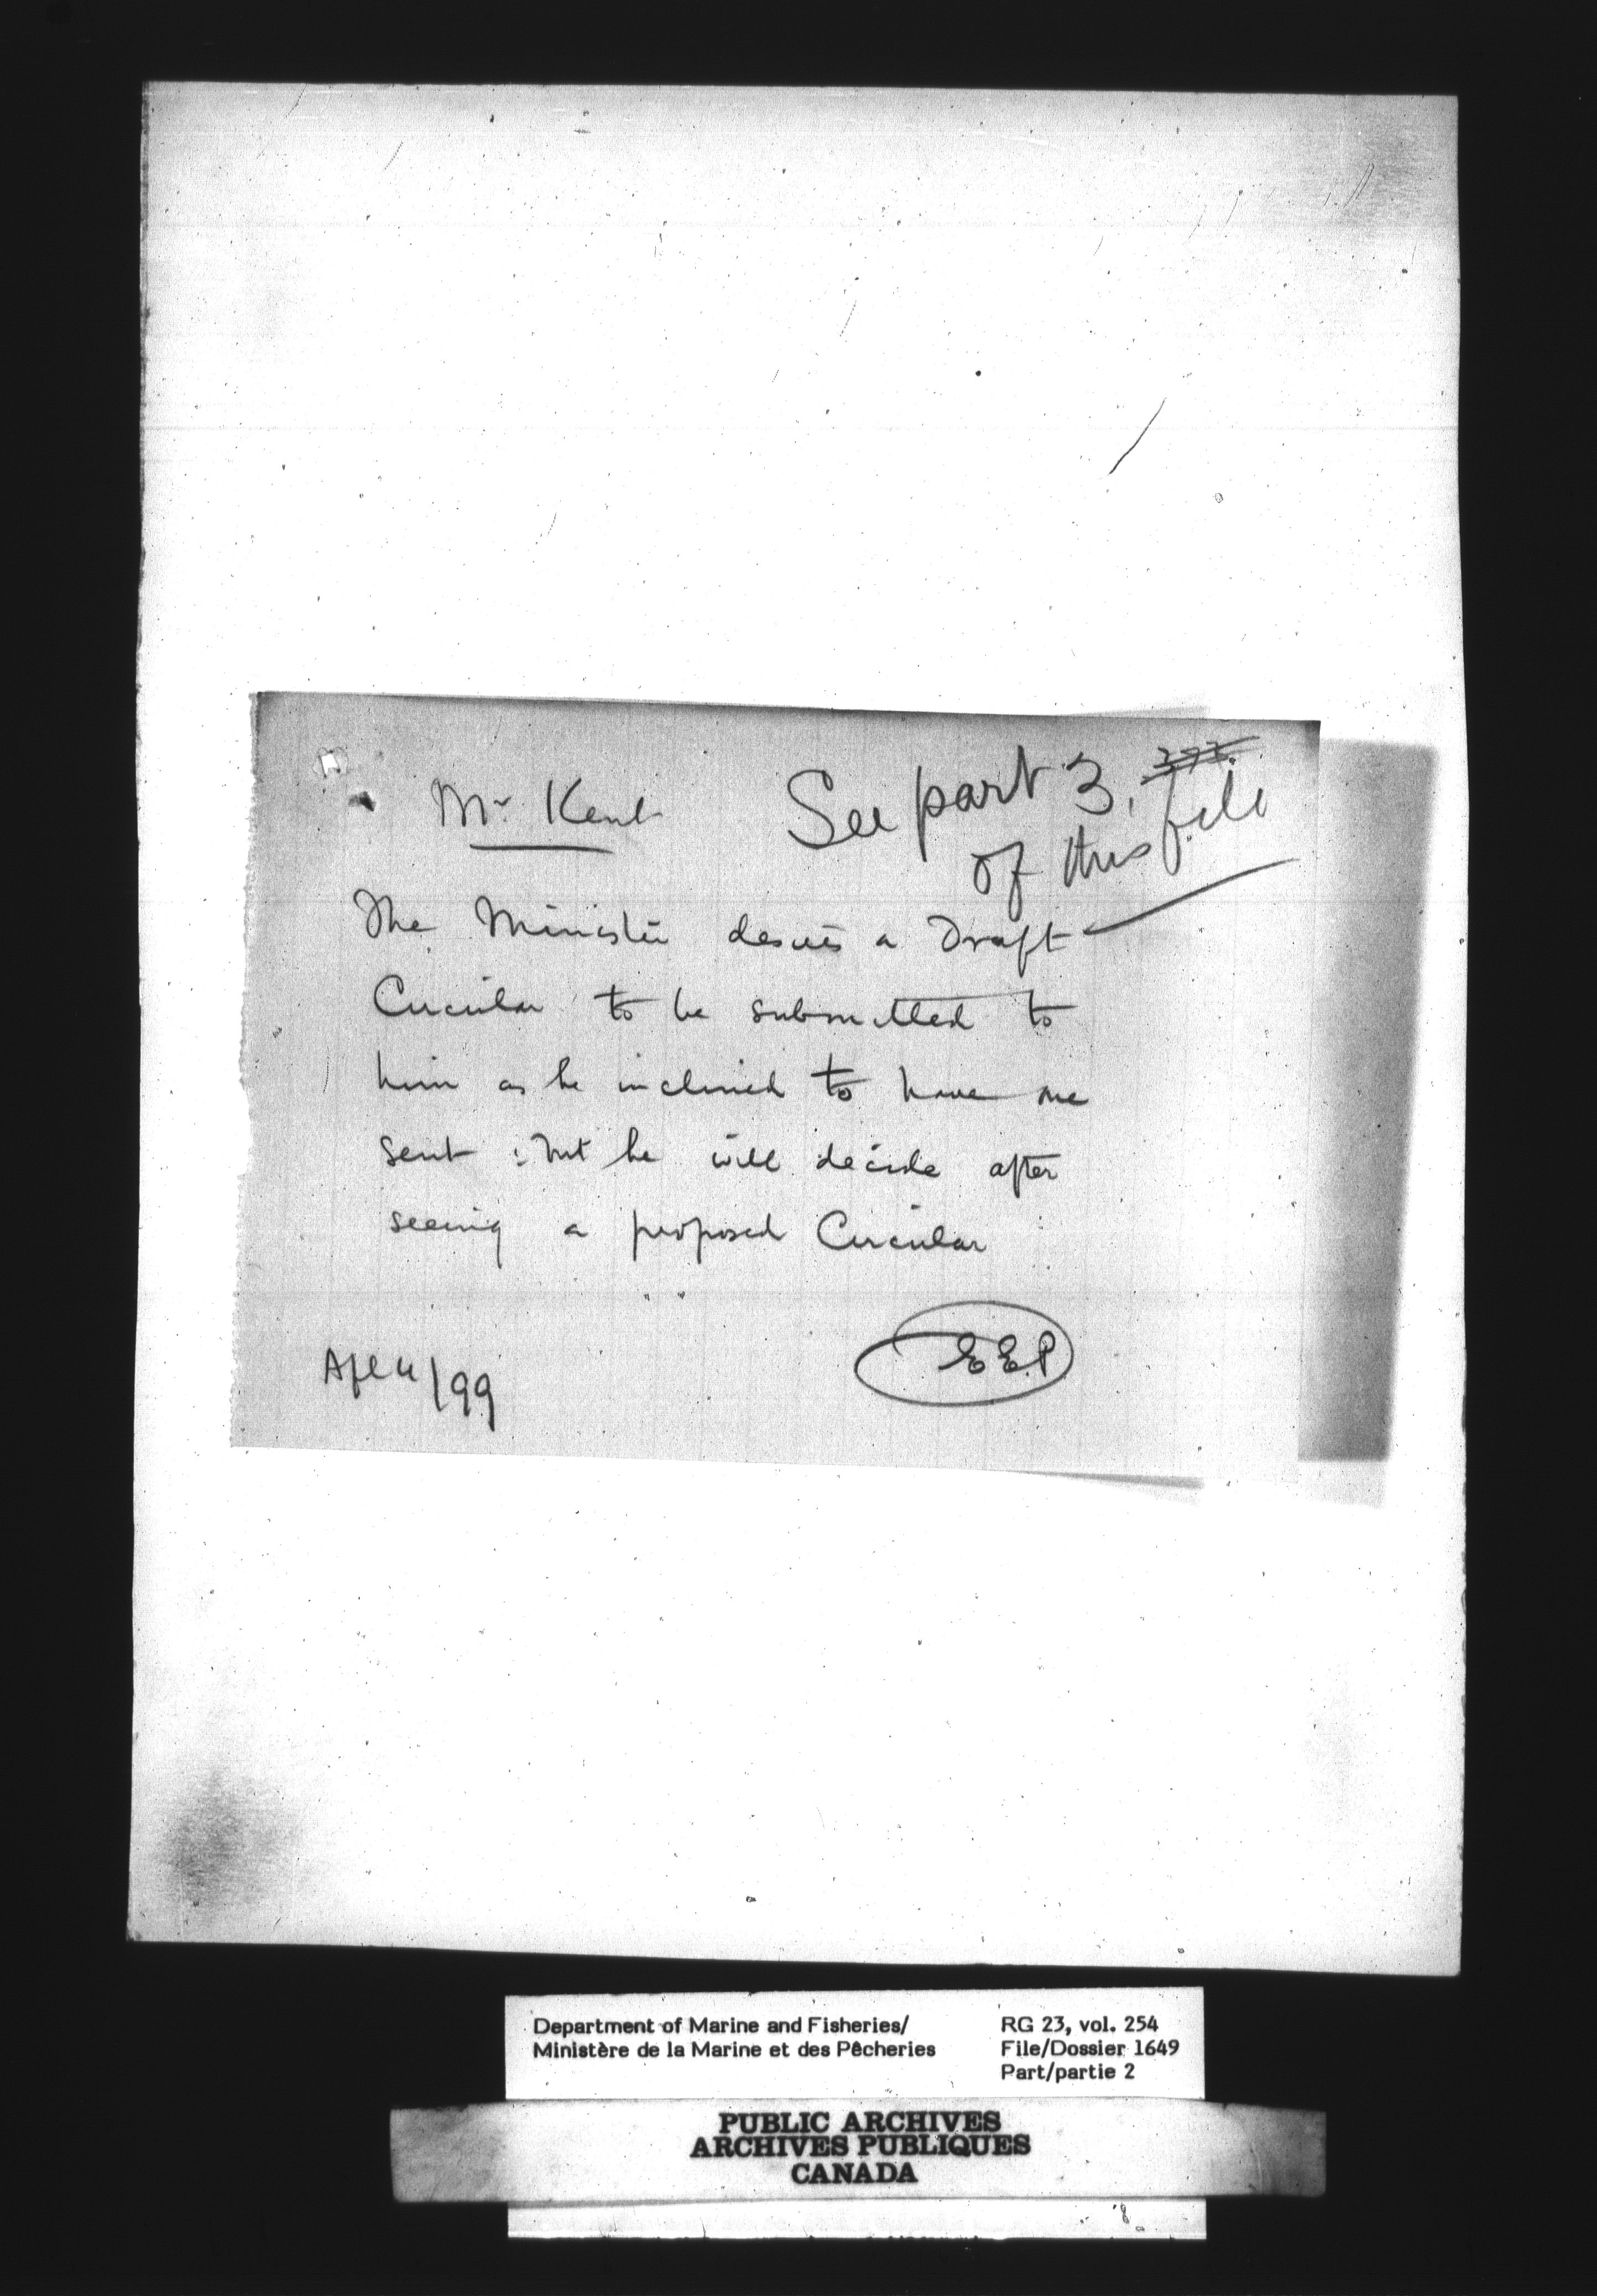 Mr Kent
See part 3,
of this file
The Minister desires a Draft
Circular to be submitted to
him as he inclined to have one
sent : but he will decide after
seeing a proposed Circular
EEP
Apl 4/99
Department of Marine and Fisheries/
Ministère de la Marine et des Pêcheries
RG 23, vol. 254
File/Dossier 1649
Part/partie 2
PUBLIC ARCHIVES
ARCHIVES PUBLIQUES
CANADA